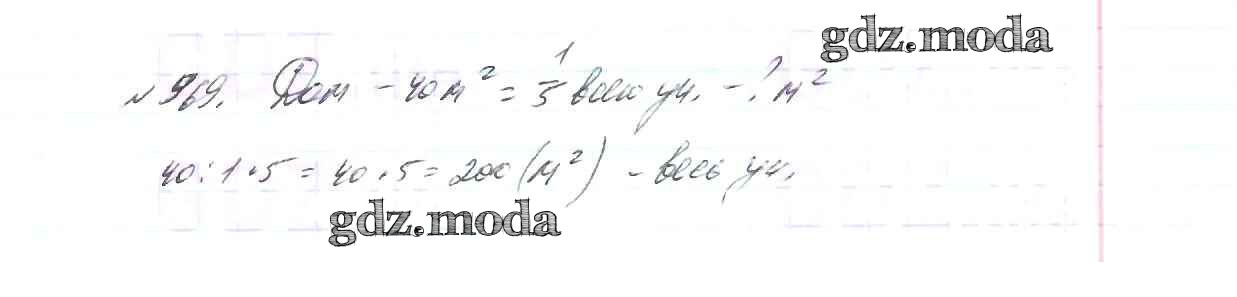 gdz.moda
№ 969. Дом - 40 м² = 1/5 всего уч. - ? м²
40 : 1 · 5 = 40 · 5 = 200 (м²) - весь уч.
gdz.moda